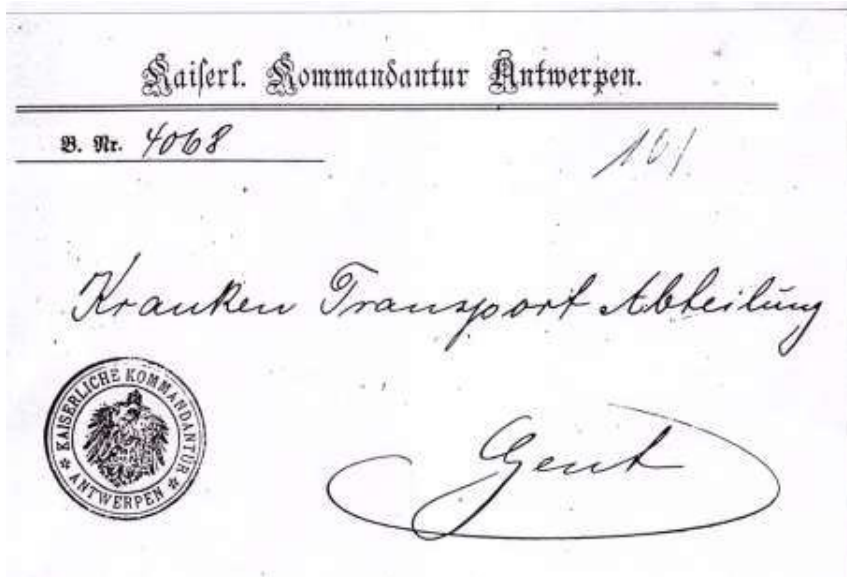 Kaiserl. Kommandantur Antwerpen.
B. Nr. 4068
101
Kranken Transport Abteilung
KAISERLICHE KOMMANDANTUR
* ANTWERPEN *
Gent